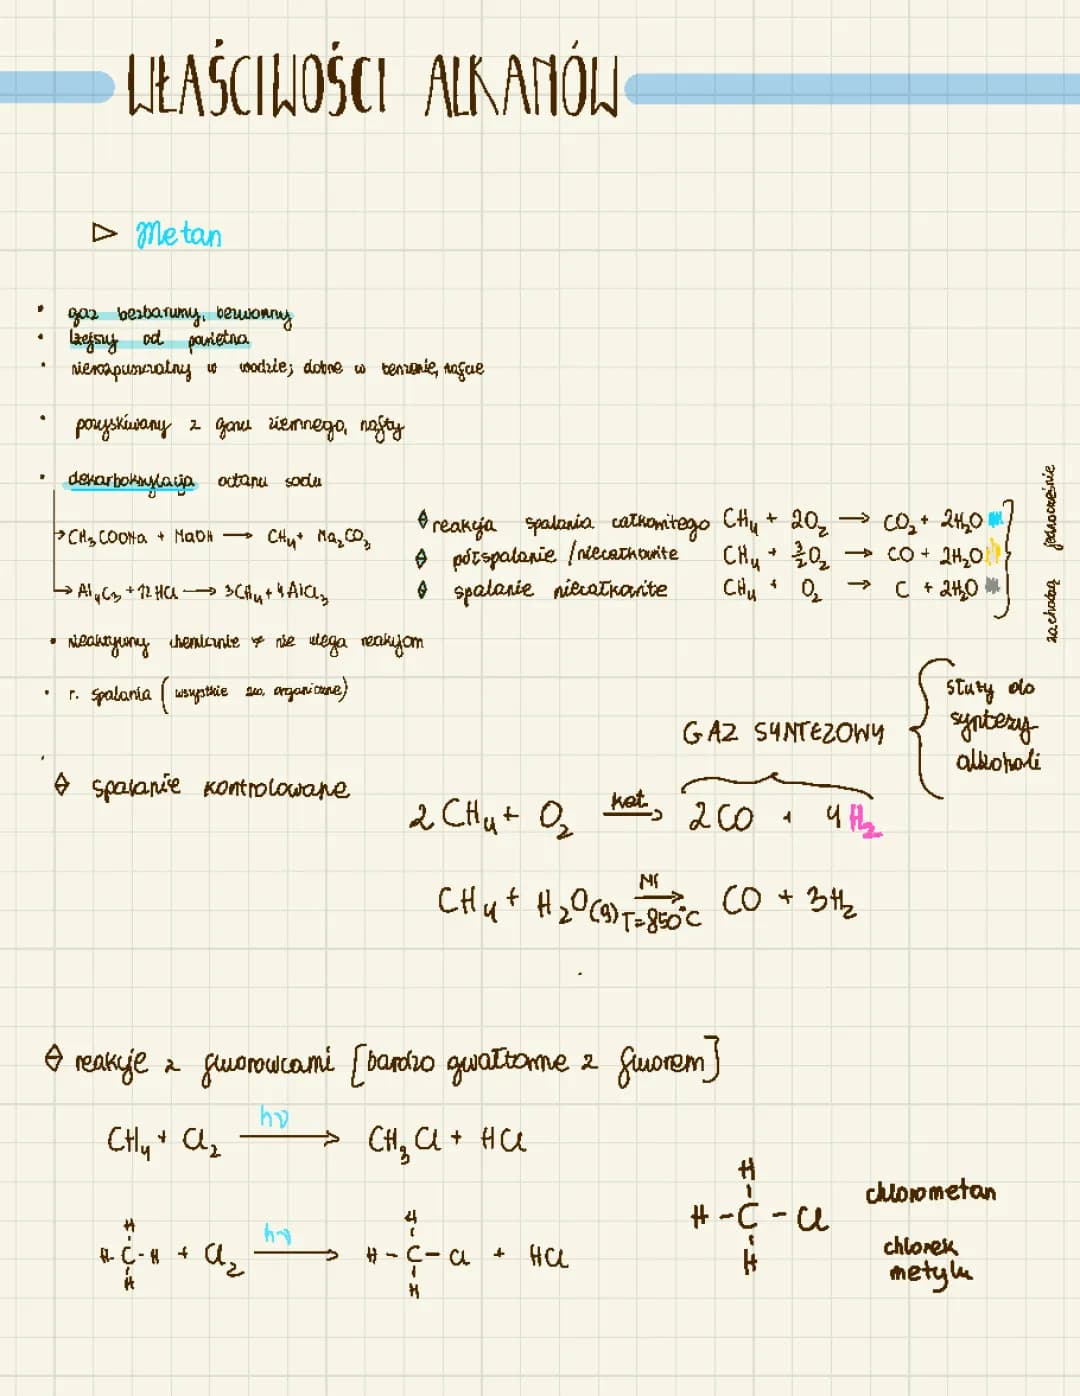 WŁAŚCIWOŚCI ALKANÓW
▷ Metan
• gaz bezbarwny, bezwonny
• lżejszy od powietrza
• nierozpuszczalny w wodzie; dobrze w benzenie, nafcie
• pozyskiwany z gazu ziemnego, nafty
• dekarboksylacja octanu sodu
→ CH₃COONa + NaOH → CH₄ + Na₂CO₃
→ Al₄C₃ + 12 HCl → 3CH₄ + 4 AlCl₃
reakcja spalania całkowitego CH₄ + 2O₂ → CO₂ + 2H₂O
półspalanie / niecałkowite CH₄ + 3/2 O₂ → CO + 2H₂O
spalanie niecałkowite CH₄ + O₂ → C + 2H₂O
zachodzą jednocześnie
• nieaktywny chemicznie ≠ nie ulega reakcjom
• r. spalania (wszystkie zw. organiczne)
GAZ SYNTEZOWY
służy do
syntezy
alkoholi
spalanie kontrolowane
2 CH₄ + O₂ kat. → 2 CO + 4 H₂
CH₄ + H₂O(g) Ni → T=850°C CO + 3H₂
reakcje z fluorowcami [bardzo gwałtowne z fluorem]
CH₄ + Cl₂ hν → CH₃Cl + HCl
H
H-C-H + Cl₂ hν → H-C-Cl + HCl
H
H
H
H
H-C-Cl
H
chlorometan
chlorek
metylu